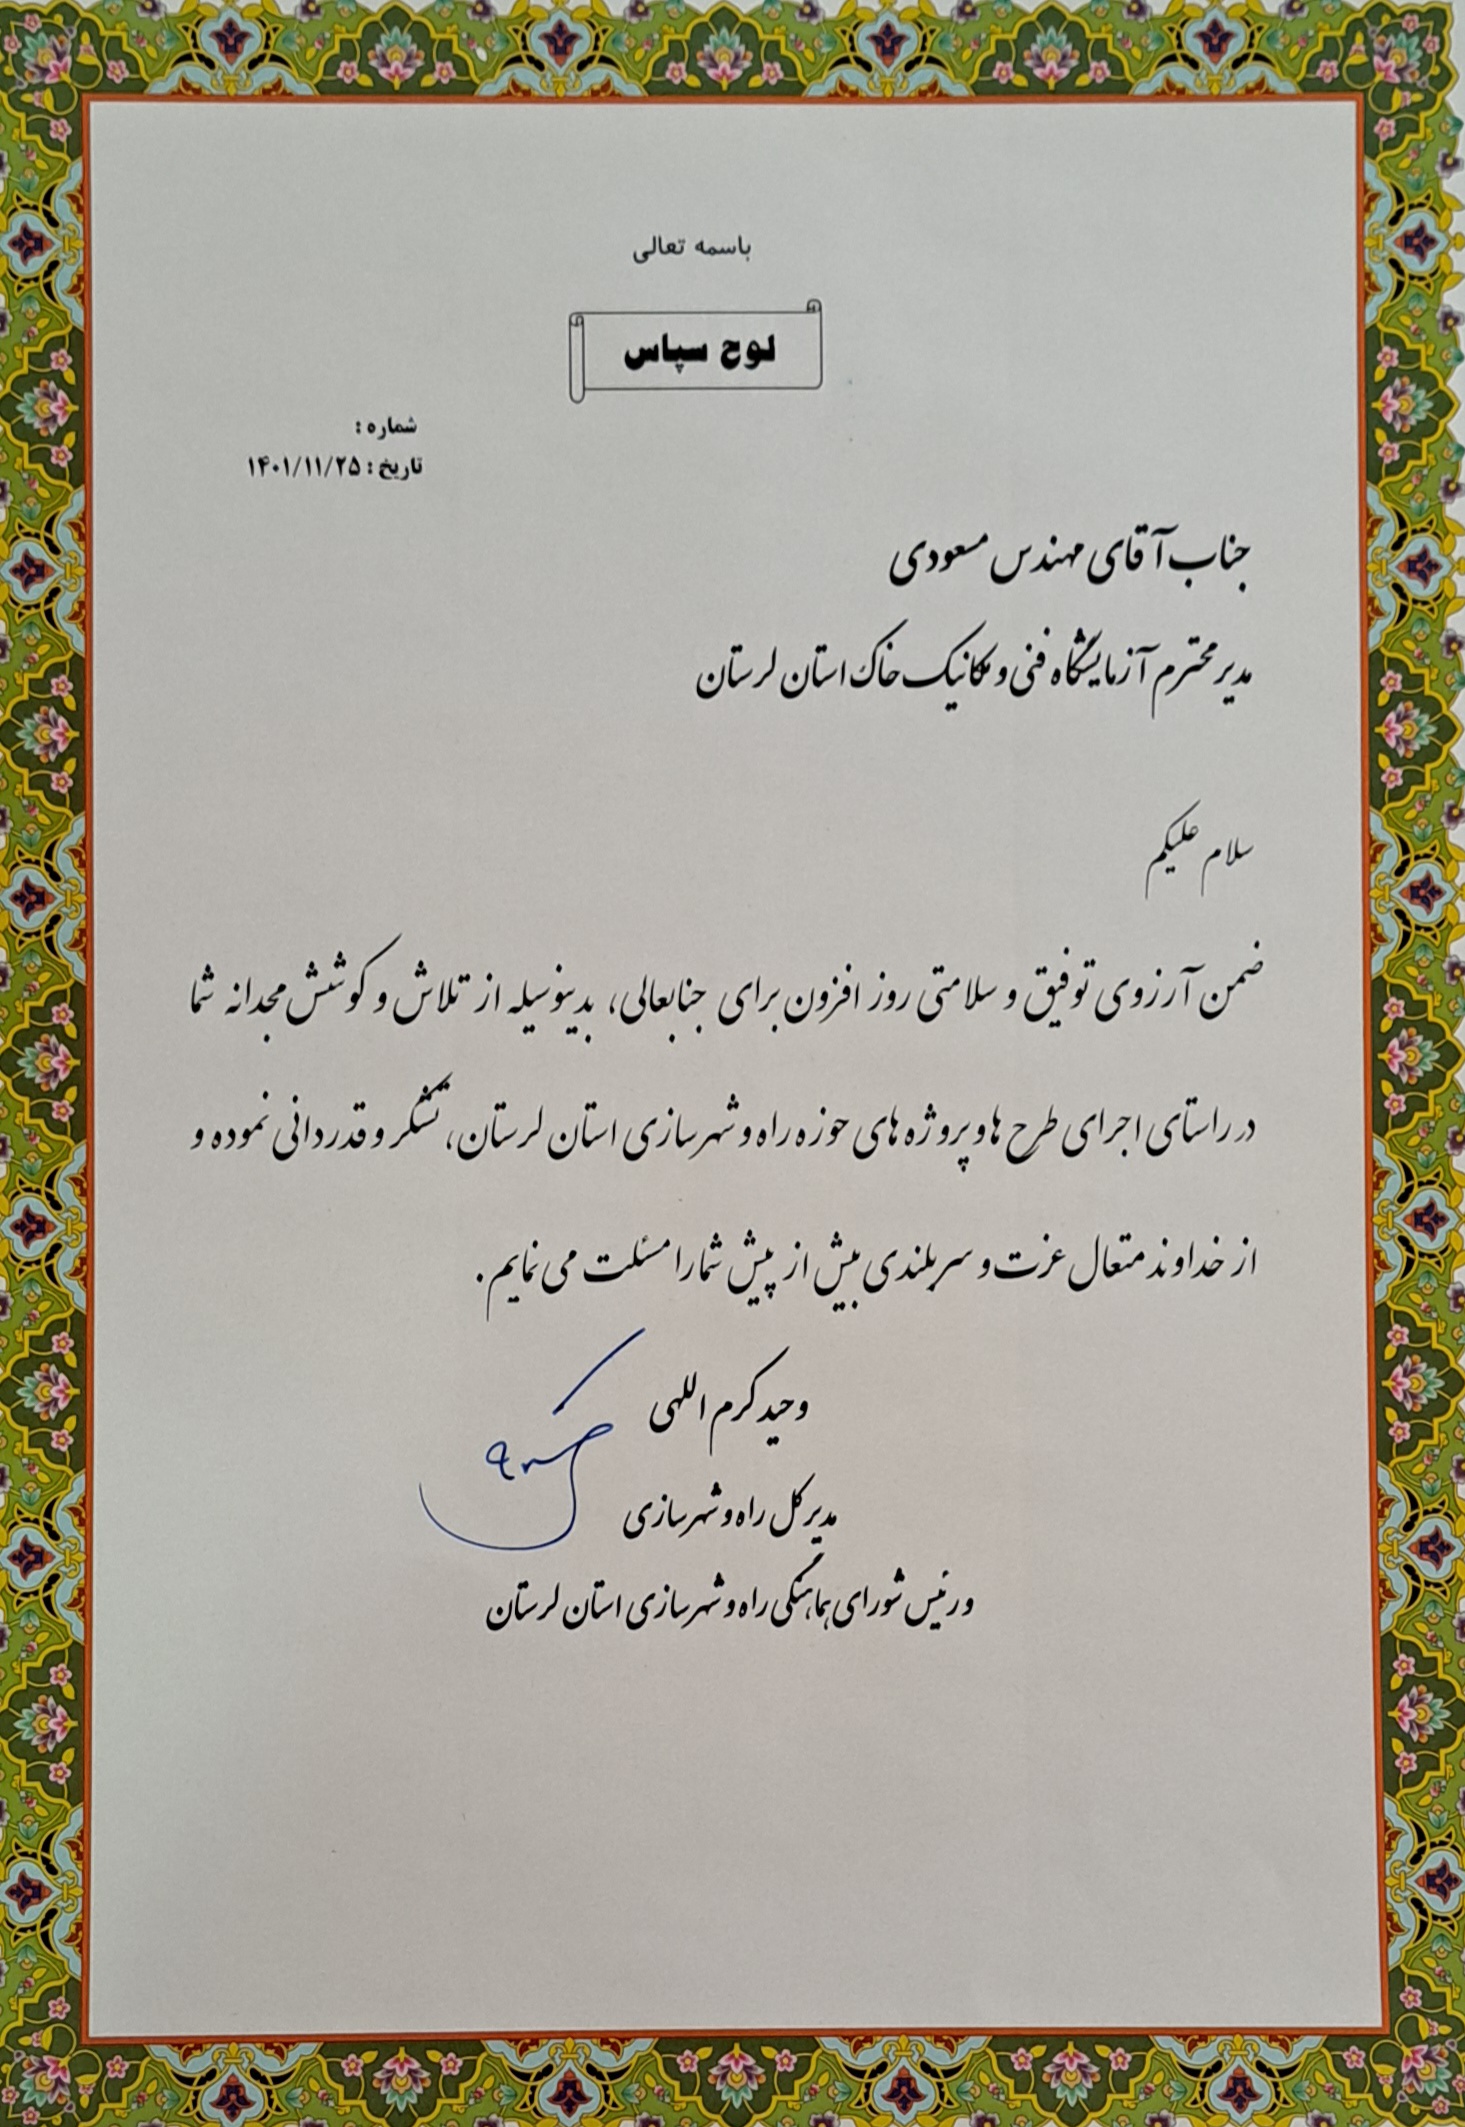 باسمه تعالی
لوح سپاس
شماره :
تاریخ : ۱۴۰۱/۱۱/۲۵
جناب آقای مهندس مسعودی
مدیر محترم آزمایشگاه فنی و مکانیک خاک استان لرستان
سلام علیکم
ضمن آرزوی توفیق و سلامتی روز افزون برای جنابعالی، بدینوسیله از تلاش و کوشش مجدانه شما
در راستای اجرای طرح ها و پروژه های حوزه راه و شهرسازی استان لرستان، تشکر و قدردانی نموده و
از خداوند متعال عزت و سربلندی بیش از پیش شما را مسئلت می نمایم.
وحید کرم اللهی
مدیر کل راه و شهرسازی
و رئیس شورای هماهنگی راه و شهرسازی استان لرستان